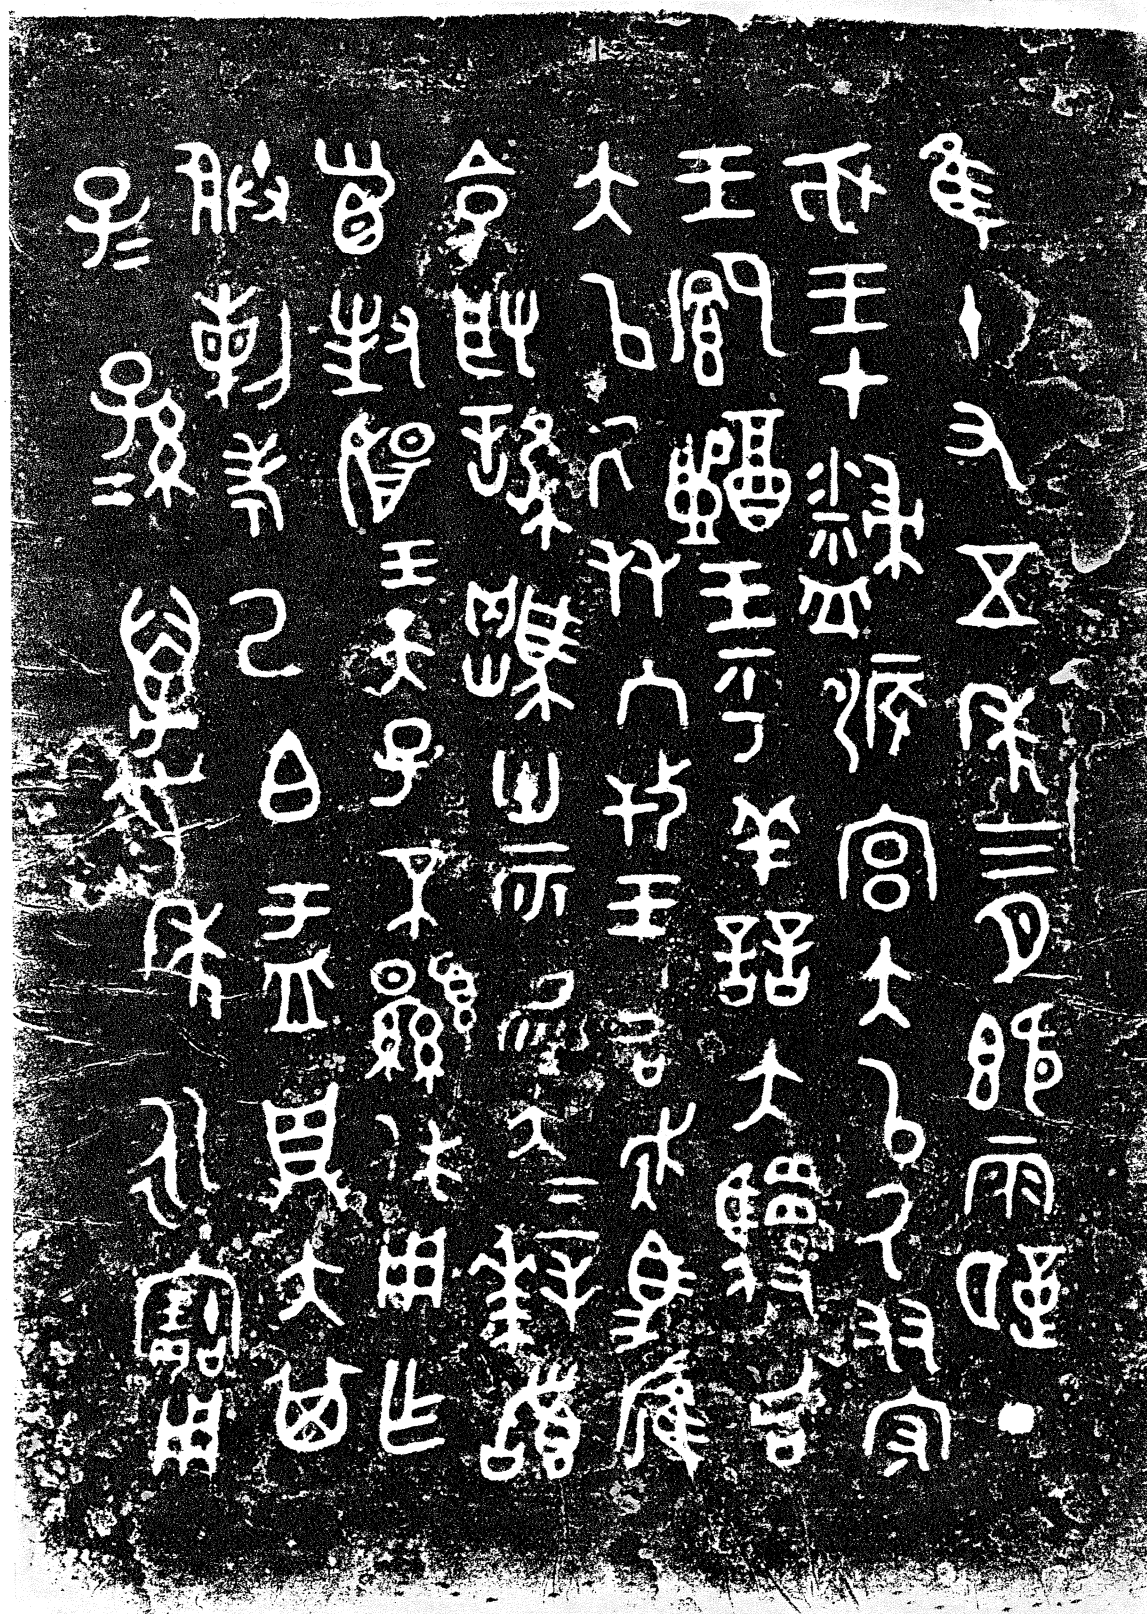 隹十又五年三月既霸丁
亥王才䊪侲宮大以氒友守
王鄉醴王乎善夫騣召
大以氒友入攼王召走馬雁
令取騅卅二匹易大拜𩒨
首對揚王天子不顯休用乍
朕剌考己白盂鼎大其
子子孫孫邁年永寶用